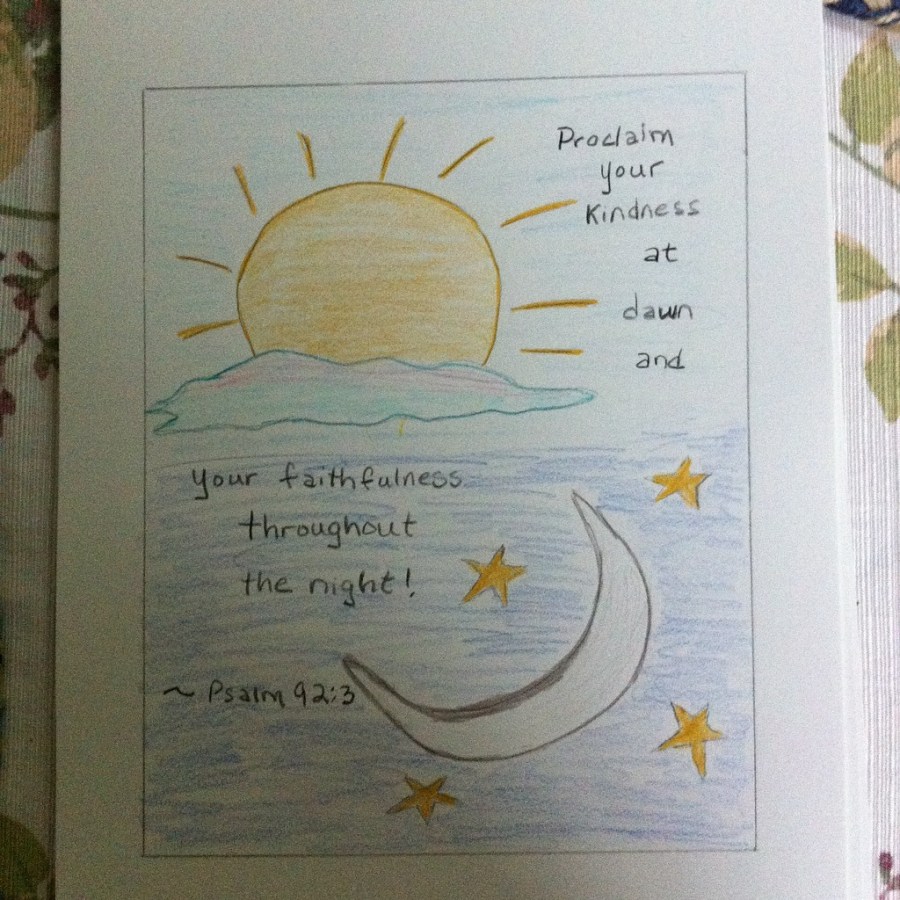 Proclaim
your
Kindness
at
dawn
and
your faithfulness
throughout
the night!
~ Psalm 92:3